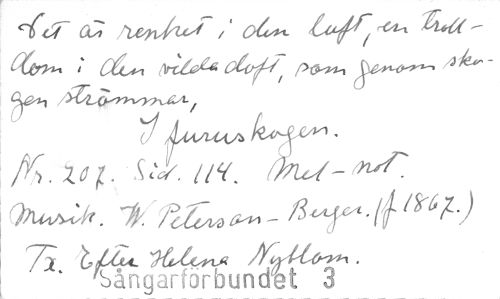 Det är renhet i den luft, en troll-
dom i den vilda doft, som genom sko-
gen strömmar,
I furuskogen.
Nr. 207. Sid. 114. Mel-not.
Musik. W. Peterson-Berger. (f 1867.)
Tx. Efter Helena Nyblom.
Sångarförbundet 3